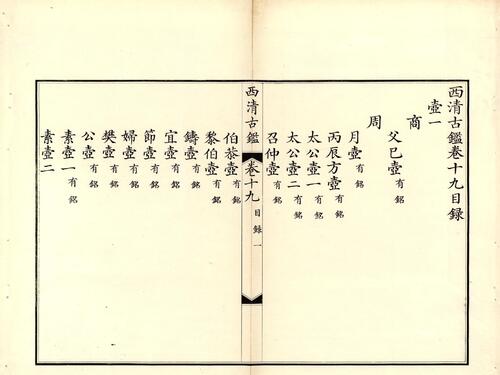 西清古鑑卷十九目録
壺一
商
父已壺有銘
周
月壺有銘
丙辰方壺有銘
太公壺一有銘
太公壺二有銘
召仲壺有銘
西清古鑑 卷十九 目録 一
伯㳟壺有銘
黎伯壺有銘
鑄壺有銘
宜壺有銘
節壺有銘
婦壺有銘
樊壺有銘
公壺有銘
素壺一有銘
素壺二